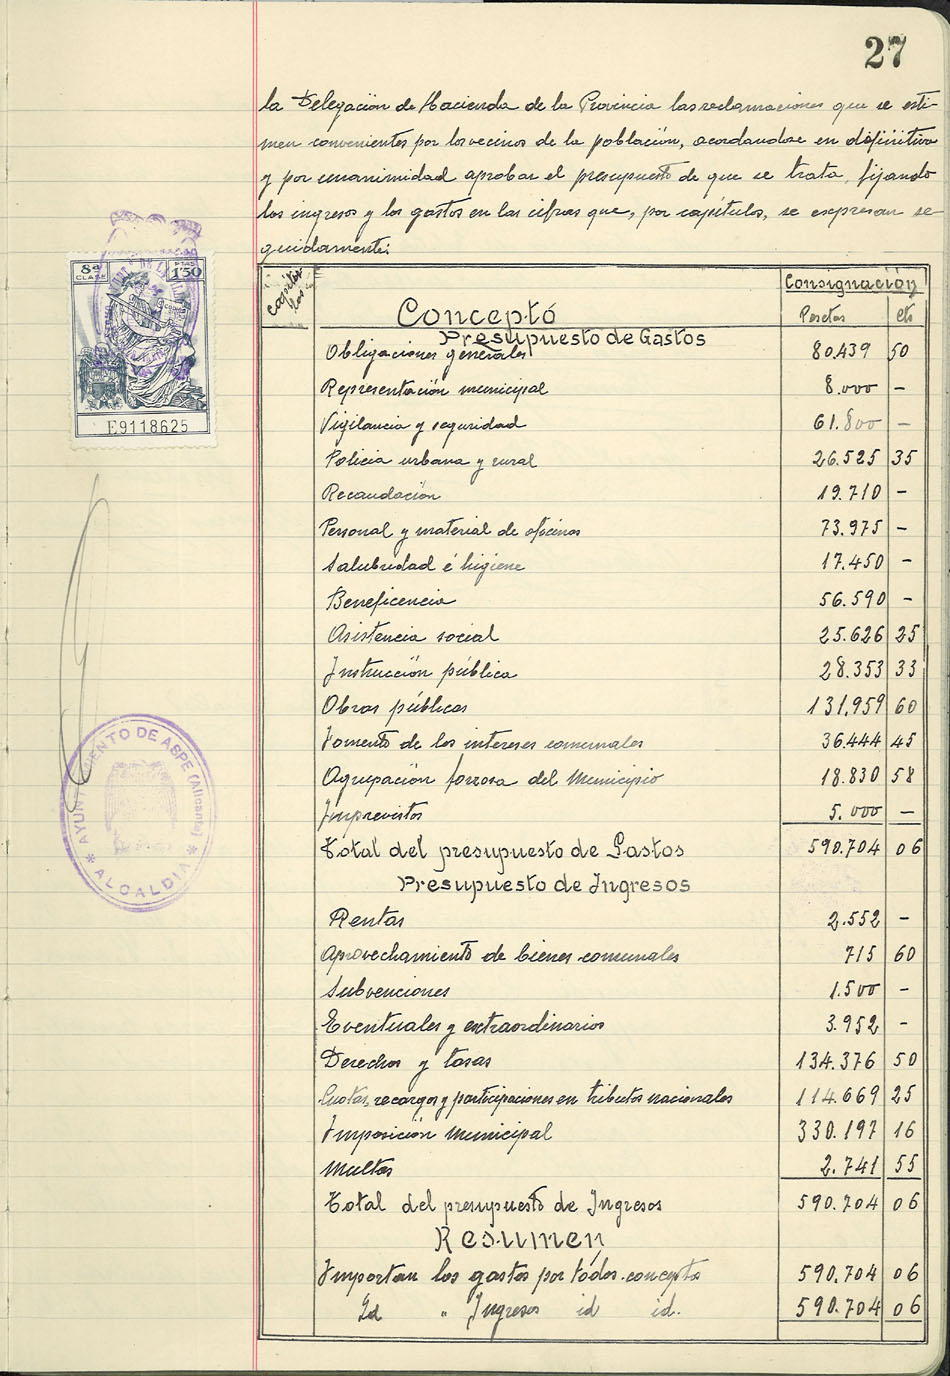 27
la Delegación de Hacienda de la Provincia las reclamaciones que se esti-
men convenientes por los vecinos de la población, acordandose en definitiva
y por unanimidad aprobar el presupuesto de que se trata, fijando
los ingresos y los gastos en las cifras que, por capítulos, se expresan se-
guidamente:
8ª CLASE
PTAS 1'50
E9118625
Consignación
Conceptó
Pesetas cts
Presupuesto de Gastos
Obligaciones generales 80.439 50
Representación municipal 8.000 -
Vigilancia y seguridad 61.800 -
Policia urbana y rural 26.525 35
Recaudación 19.710 -
Personal y material de oficinas 73.975 -
Salubridad é higiene 17.450 -
Beneficencia 56.590 -
Asistencia social 25.626 25
Instrucción pública 28.353 33
Obras públicas 131.959 60
Fomento de los intereses comunales 36.444 45
Agrupación forzosa del Municipio 18.830 58
Imprevistos 5.000 -
Total del presupuesto de Gastos 590.704 06
Presupuesto de Ingresos
Rentas 2.552 -
Aprovechamiento de bienes comunales 715 60
Subvenciones 1.500 -
Eventuales y extraordinarios 3.952 -
Derechos y tasas 134.376 50
Cuotas, recargos y participaciones en tributos nacionales 114.669 25
Imposición Municipal 330.197 16
Multas 2.741 55
Total del presupuesto de Ingresos 590.704 06
Resumen
Importan los gastos por todos conceptos 590.704 06
Id " Ingresos id id. 590.704 06
AYUNTAMIENTO DE ASPE (Alicante)
* ALCALDIA *